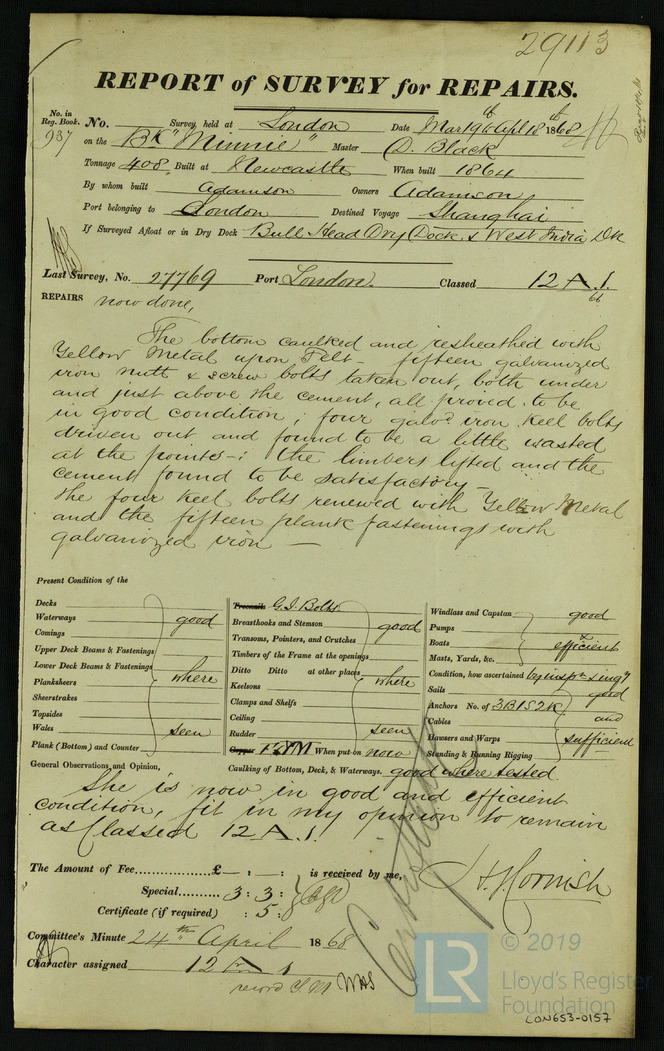 29113
REPORT of SURVEY for REPAIRS.
No. in Reg. Book.
937
No. Survey, held at London Date Mar 19th & Apl 18th 1868
on the Bk "Minnie" Master D. Black
Tonnage 408, Built at Newcastle When built 1864
By whom built Adamson Owners Adamson
Port belonging to London Destined Voyage Shanghai
If Surveyed Afloat or in Dry Dock Bull Head Dry Dock & West India Dk
Last Survey, No. 27769 Port London. Classed 12 A.1.
66
REPAIRS now done,
The bottom caulked and resheathed with
Yellow Metal upon Felt - fifteen galvanized
iron nutt & screw bolts taken out, both under
and just above the cement, all proved to be
in good condition; four galvd iron keel bolts
driven out and found to be a little wasted
at the points -; the limbers lifted and the
cement found to be satisfactory -
The four keel bolts renewed with Yellow Metal
and the fifteen plank fastenings with
galvanized iron -
Present Condition of the
Decks
Waterways good
Comings
Upper Deck Beams & Fastenings
Lower Deck Beams & Fastenings
Planksheers where
Sheerstrakes
Topsides
Wales seen
Plank (Bottom) and Counter
Treenails G.I. Bolts
Breasthooks and Stemson good
Transoms, Pointers, and Crutches
Timbers of the Frame at the openings
Ditto Ditto at other places where
Keelsons
Clamps and Shelfs
Ceiling
Rudder seen
Copper F & YM When put on now
Caulking of Bottom, Deck, & Waterways. good where tested
Windlass and Capstan good
Pumps
Boats & efficient
Masts, Yards, &c.
Condition, how ascertained by inspn & ingy
Sails good
Anchors No. of 3B 1S 2K
Cables and
Hawsers and Warps sufficient
Standing & Running Rigging
General Observations and Opinion,
She is now in good and efficient
condition, fit in my opinion to remain
as Classed 12 A.1.
The Amount of Fee £ - : - : is received by me,
Special 3 : 3 :
Certificate (if required) : 5 :
J H J Cornish
Committee's Minute 24th April 1868
Character assigned 12 A 1
record Y.M WAS
LR
© 2019
Lloyd's Register
Foundation
LON653-0157